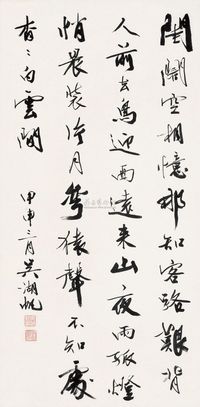 閨閣空相憶那知客路艱背
人前去鳥迎面遠來山夜雨孤燈
悄晨裝片月彎猿聲不知處
杳〻白雲間
甲申三月吳湖帆